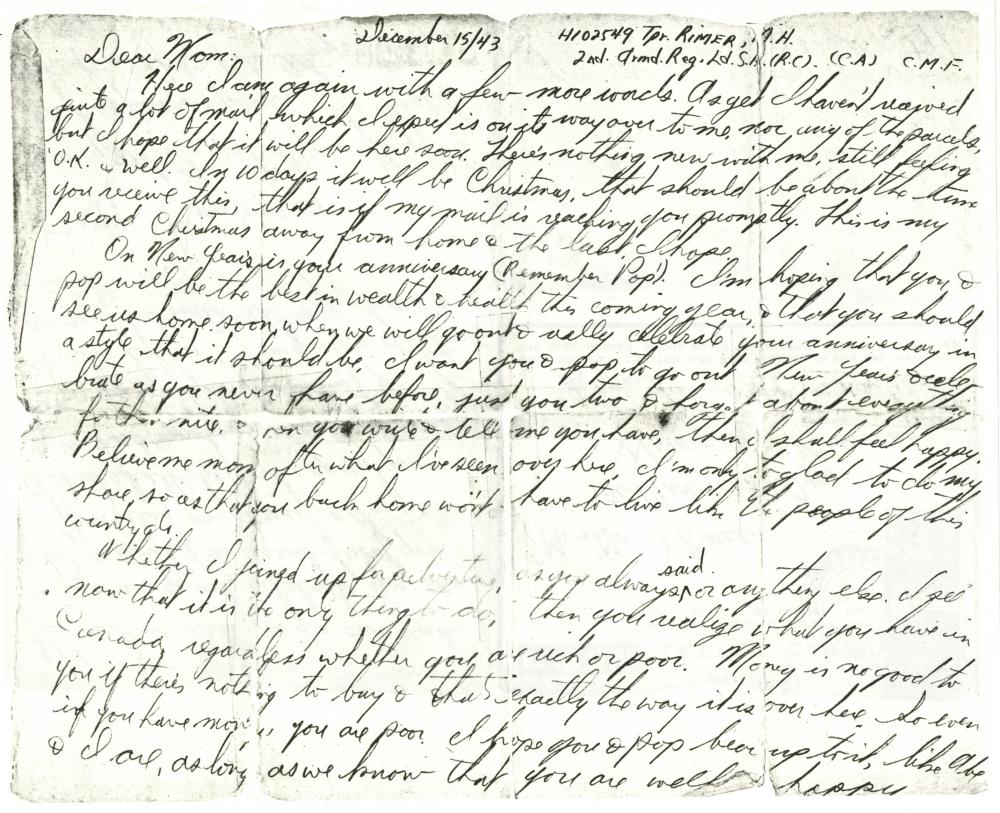 December 15/43
H102549 Tpr. RIMER, M.H.
2nd. Armd. Reg. Ld. S.H. (R.C). (C.A) C.M.F.
Dear Mom:
Here I am again with a few more words. As yet I haven't received
quite a lot of mail which I expect is on its way over to me, nor any of the parcels,
but I hope that it will be here soon. There's nothing new with me, still feeling
O.K. & well. In 10 days it will be Christmas, that should be about the time
you receive this, that is if my mail is reaching you promptly. This is my
second Christmas away from home & the last, I hope.
On New Years is your anniversary (Remember Pop)! I'm hoping that you &
pop will be the best in wealth & health this coming year, & that you should
see us home soon, when we will go out & really celebrate your anniversary in
a style that it should be. I want you & pop, to go out New Years & cele-
brate as you never have before, just you two & forget about everything
for the nite, & when you write & tell me you have, then I shall feel happy.
Believe me mom after what I've seen over here, I'm only to glad to do my
share, so as that you back home won't have to live like the people of this
country do.
Whether I joined up for adventure, as you always said, or any thing else. I see
now that it is the only thing to do, then you realize what you have in
Canada regardless whether you are rich or poor. Money is no good to
you if there's nothing to buy & that's exactly the way it is over here. So even
if you have money, you are poor. I hope you & pop bear up to it, like Abe
& I are, as long as we know that you are well & happy